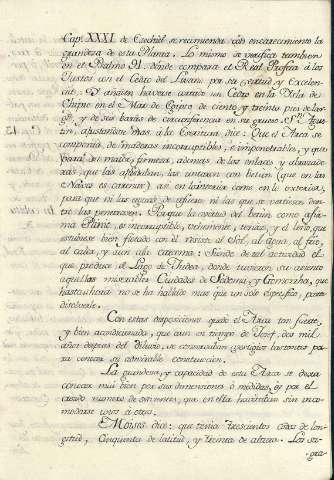 Cap. XXXI de Ezechiel se recomienda con encarecimiento la
grandeza de esta Planta. Lo mismo se verifica tambien
en el Psalmo 91. donde compara el Real Profeta à los
Justos con el Cedro del Livano por su virtud y excelen-
cia. Y añaden haverse cortado un Cedro en la Isla de
Chipre en el Mar de Egipto de ciento, y treinta pies de lar-
go, y de seis baras de circunferencia en su grueso. Sn. Agus-
tin, ajustandose mas à la Escritura, dice: Que el Arca se
componia de maderas incorruptibles, e impenetrables, y que
para mayor firmeza, ademas de los enlaces y
que las afianzaban, las untaron con betun (que en las
Naves es carena) asi en lo interior como en lo exterior,
para que ni las aguas
las penetrasen. Porque la virtud del betun como afir-
ma Plinio, es incorruptible, vehemente, tenaz, y el leño, que
estubiese bien fixado con él resiste al Sol, al agua, al frio,
al calor, y aun à la carcoma: Siendo de tal actividad el
que produce el Lago de Judea, donde tuvieron su asiento
aquellas miserables Ciudades de Sodoma, y Gomorrha, que
hasta ahora no se ha hallado mas que un solo especifico para
disolverle.
Con estas disposiciones quedó el Arca tan fuerte,
y bien acondicionada, que aun en tiempo de Josef, dos mil
años despues del diluvio, se conservaban vestigios bastantes pa-
ra contar su admirable construccion.
La grandeza, y capacidad de esta Arca se dexa
conocer mui bien por sus dimensiones ò medidas, y por el
crecido numero de vivientes, que en ella havitaban sin inco-
modarse unos à otros.
Moises dice: que tenia trescientos codos de lon-
gitud, cinquenta de latitud, y treinta de altura. Los su-